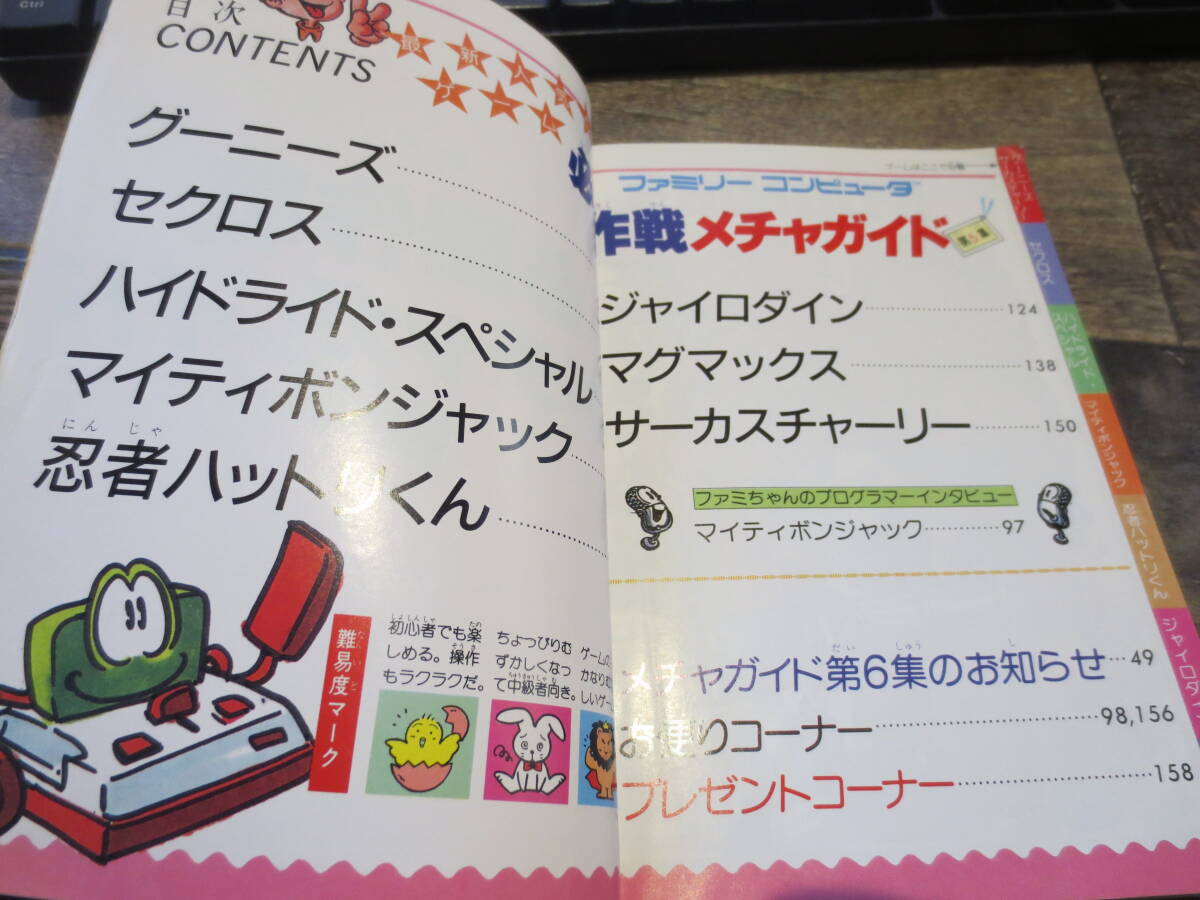 Ctrl
目次
CONTENTS
最新人
ゲーム
グーニーズ
セクロス
ハイドライド・スペシャル
マイティボンジャック
にんじゃ
忍者ハットリくん
なんいど
難易度マーク
しょしんしゃ たの
初心者でも楽
そうさ
しめる。操作
もラクラクだ。
ちょっぴりむ
ずかしくなっ
ちゅうきゅうしゃむ
て中級者向き。
ゲームの
かなりむ
しいゲー
ゲームはここで
ファミリー コンピュータ
さくせん
作戦メチャガイド
第5集
ジャイロダイン 124
マグマックス 138
サーカスチャーリー 150
ファミちゃんのプログラマーインタビュー
マイティボンジャック 97
だい しゅう し
メチャガイド第6集のお知らせ 49
お便りコーナー 98,156
プレゼントコーナー 158
セクロス
ハイドライド・
スペシャル
マイティボンジャック
忍者ハットリくん
ジャイロダイ